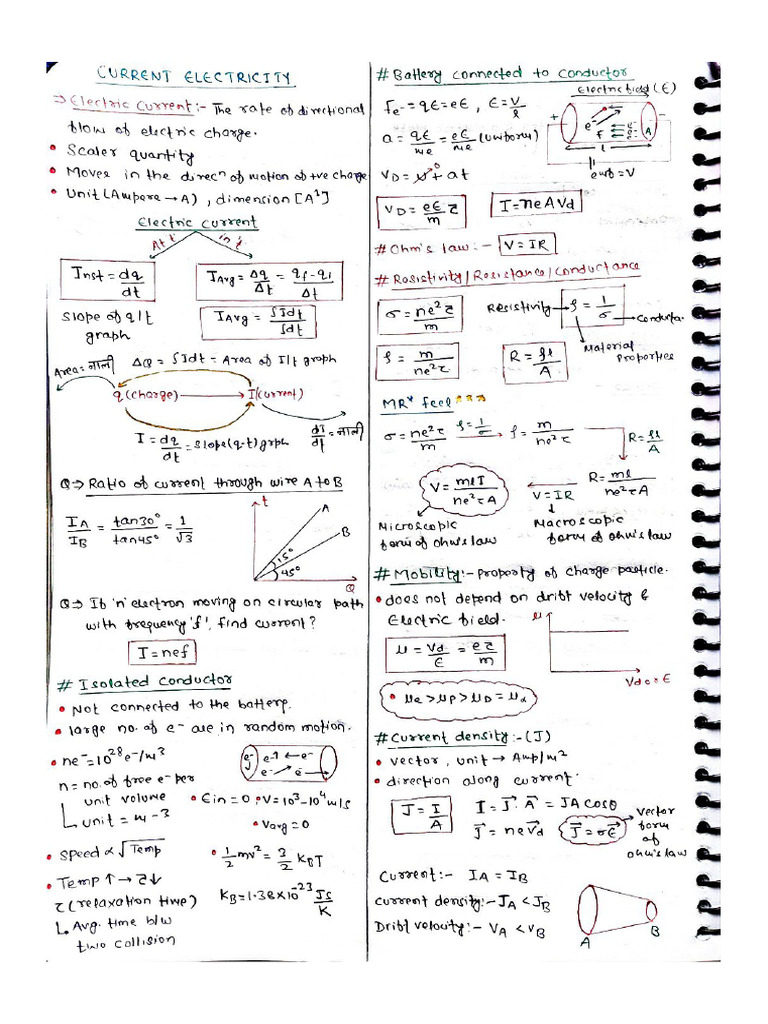 CURRENT ELECTRICITY
⇒ Electric Current:- The rate of directional
flow of electric charge.
• Scaler quantity
• Moves in the direcⁿ of motion of +ve charge
• Unit (Ampere → A) , dimension [A¹]
Electric current
At 't'
in 't'
Inst = dq/dt
IAvg = Δq/Δt = (qf - qi)/Δt
slope of q/t
graph
IAvg = ∫Idt/∫dt
Area = नाली
ΔQ = ∫Idt = Area of I/t graph
q (charge) → I (current)
I = dq/dt = slope (q-t) graph
dI/dt = नाली
Q ⇒ Ratio of current through wire A to B
IA/IB = tan30°/tan45° = 1/√3
t
A
B
15°
45°
Q
Q ⇒ If 'n' electron moving on circular path
with frequency 'f', find current?
I = nef
# Isolated conductor
• Not connected to the battery.
• large no. of e⁻ are in random motion.
• ne⁻ = 10²⁸ e⁻/m³
n = no. of free e⁻ per
unit volume
unit = m⁻³
e⁻ e⁻ e⁻
e⁻ e⁻
• Ein = 0 • V = 10³ - 10⁴ m/s
• Vavg = 0
• Speed ∝ √Temp
• 1/2 mv² = 3/2 KBT
• Temp ↑ → τ↓
τ (relaxation time)
Avg. time b/w
two collision
KB = 1.38 x 10⁻²³ Js/K
# Battery connected to conductor
Electric field (E)
Fe⁻ = qE = eE , E = V/l
a = qE/me = eE/me (uniform)
+
-
e⁻
F
e⁻
e⁻
A
l
emf = V
VD = u⁰ + at
VD = eE/m τ
I = neAVd
# Ohm's law :- V = IR
# Resistivity / Resistance / Conductance
σ = ne²τ/m
Resistivity → ρ = 1/σ → Conducta.
Material
Properties
ρ = m/ne²τ
R = ρl/A
MR* feel ★★★
σ = ne²τ/m ρ = 1/σ → ρ = m/ne²τ
R = ρl/A
R = ml/ne²τA
V = IR
V = mlI/ne²τA
Microscopic
form of ohm's law
Macroscopic
form of ohm's law
# Mobility:- property of charge particle.
• does not depend on drift velocity &
Electric field.
μ
μ = Vd/E = eτ/m
Vd or E
• μe > μP > μD = μα
# Current density:- (J)
• vector , unit → Amp/m²
• direction along current.
J = I/A
I = J⃗. A⃗ = JA cosθ
J⃗ = neV⃗d
J⃗ = σE⃗
vector
form
of
ohm's law
Current:- IA = IB
Current density:- JA < JB
Drift velocity:- VA < VB
A
B